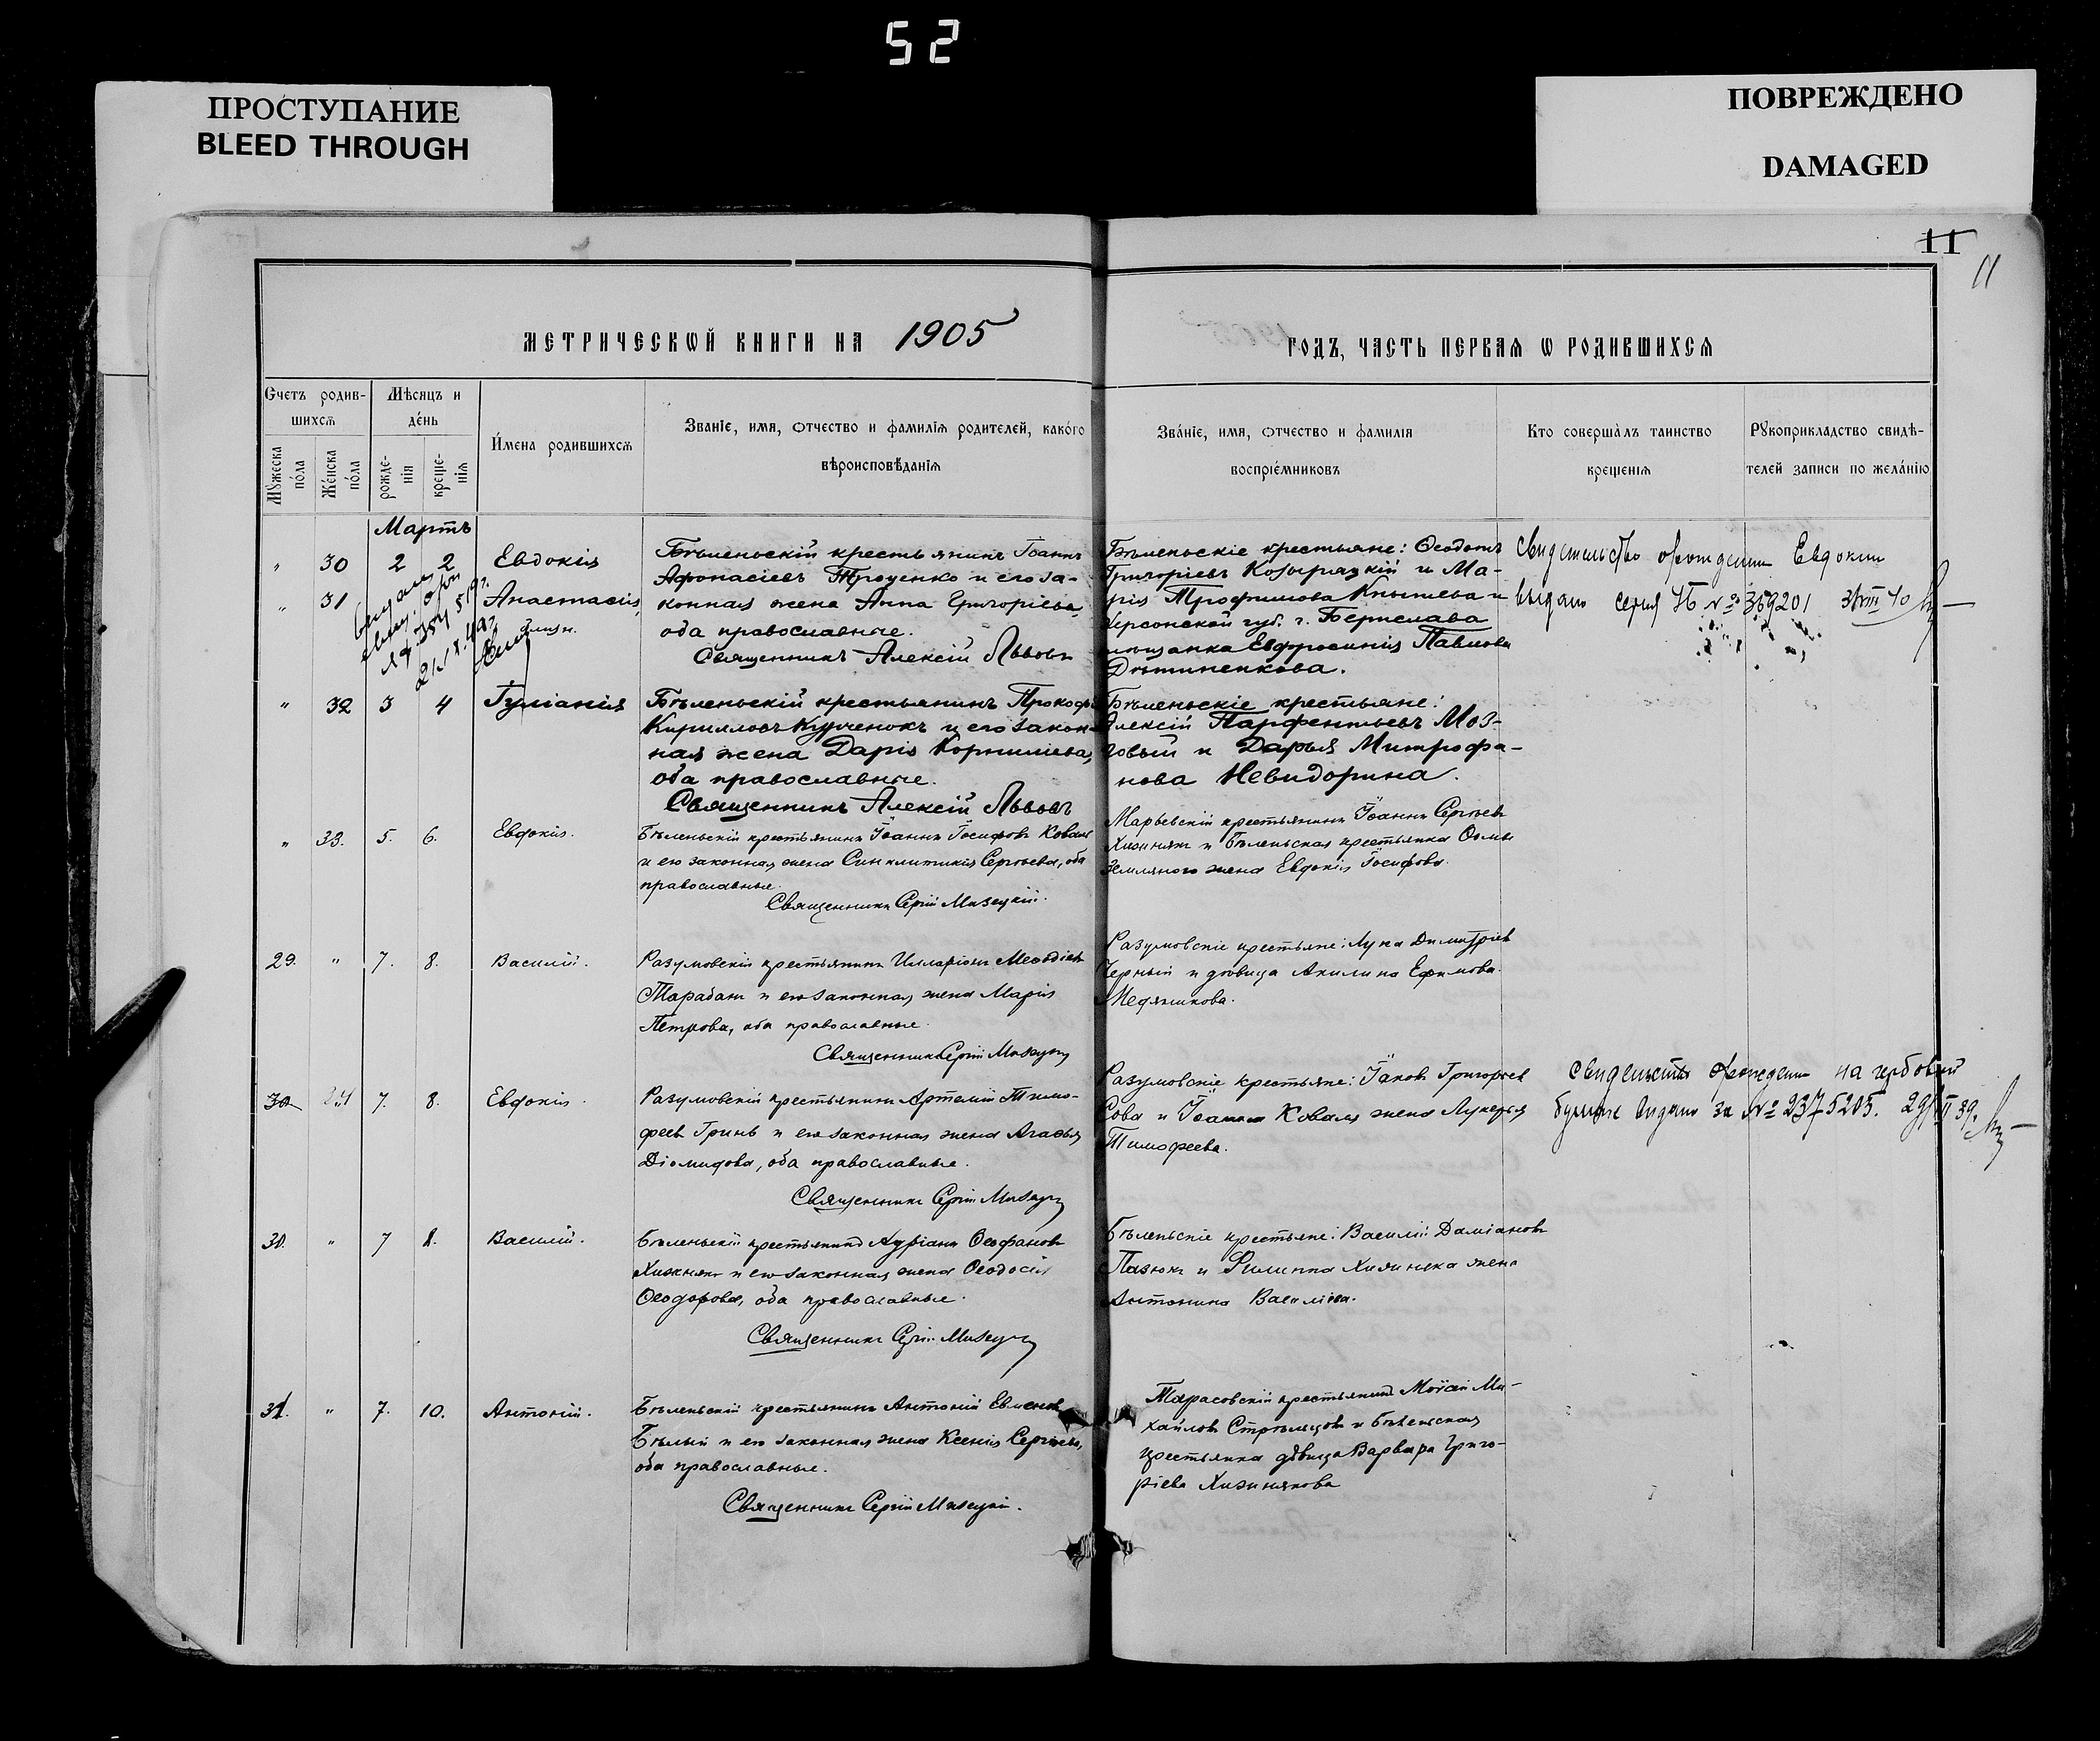 52
ПРОСТУПАНИЕ
BLEED THROUGH
ПОВРЕЖДЕНО
DAMAGED
11
11
МЕТРИЧЕСКѠЙ КНИГИ НА 1905
ГОДЪ, ЧАСТЬ ПЕРВАЯ Ѡ РОДИВШИХСЯ
Счетъ родив-
шихся
Мѣсяцъ и
день
Мужеска
пола
Женска
пола
рожде-
нія
креще-
нія
Имена родившихся
Званіе, имя, отчество и фамилія родителей, какого
вѣроисповѣданія
Званіе, имя, отчество и фамилія
воспріемниковъ
Кто совершалъ таинство
крещенія
Рукоприкладство свидѣ-
телей записи по желанію
Мартъ
" 30 2 2 Евдокія
" 31 Анастасія
близн.
Бѣленьскій крестьянинъ Іоаннъ
Афонасіевъ Троценко и его за-
конная жена Анна Григоріева,
оба православные.
Священникъ Алексій Львовъ
Бѣленьскіе крестьяне: Ѳеодотъ
Григоріевъ Козыряцкій и Ма-
рія Трофимова Кнышева и
Херсонской губ. г. Берислава
мѣщанка Евфросинія Павлова
Дѣтиненкова.
Свидетельство о рождении Евдокии
выдано серия № 369201 3/VIII 40
" 32 3 4 Іуліанія
Бѣленьскій крестьянинъ Прокофі
Кирилловъ Курченокъ и его закон-
ная жена Дарія Корнилiева,
оба православные.
Священникъ Алексій Львовъ
Бѣленьскіе крестьяне:
Алексій Парфентьевъ Моз-
говый и Дарья Митрофа-
нова Невидорина.
" 33. 5. 6. Евдокія.
Бѣленьскій крестьянинъ Іоаннъ Іосифовъ Коваль
и его законная жена Синклитикія Сергѣева, оба
православные.
Священникъ Сергій Мизецкій.
Марьевскій крестьянинъ Іоаннъ Сергѣевъ
Хижнякъ и Бѣленьская крестьянка Ѳомы
Землянаго жена Евдокія Іосифова.
29. " 7. 8. Василій.
Разумовскій крестьянинъ Илларіонъ Меѳодіевъ
Тарабанъ и его законная жена Марія
Петрова, оба православные.
Священникъ Сергій Мизецкій
Разумовскіе крестьяне: Лука Димитріевъ
Черный и дѣвица Акилина Ефимова
Медяникова.
30 34 7. 8. Евдокія.
Разумовскій крестьянинъ Артемій Тимо-
феевъ Гринь и его законная жена Агаѳья
Діомидова, оба православные.
Священникъ Сергій Мизецкій
Разумовскіе крестьяне: Іаковъ Григорьев
Сова и Іоанна Коваля жена Лукерья
Тимофеева.
свидетельство о рождении на гербовой
бумаге выдано за № 2375205. 29/II 39г.
30. " 7 8. Василій.
Бѣленьскій крестьянинъ Адріанъ Ѳеофановъ
Хижнякъ и его законная жена Ѳеодосія
Ѳеодорова, оба православные.
Священникъ Сергій Мизецкій
Бѣленьскіе крестьяне: Василій Даміановъ
Пазюкъ и Филиппа Хижняка жена
Антонина Василіева.
31. " 7. 10. Антоній.
Бѣленьскій крестьянинъ Антоній Евменов
Бѣлый и его законная жена Ксенія Сергѣева,
оба православные.
Священникъ Сергій Мизецкій.
Тарасовскій крестьянинъ Моѵсей Ми-
хайловъ Стрѣльцовъ и Бѣленьская
крестьянка дѣвица Варвара Григо-
ріева Хижнякова